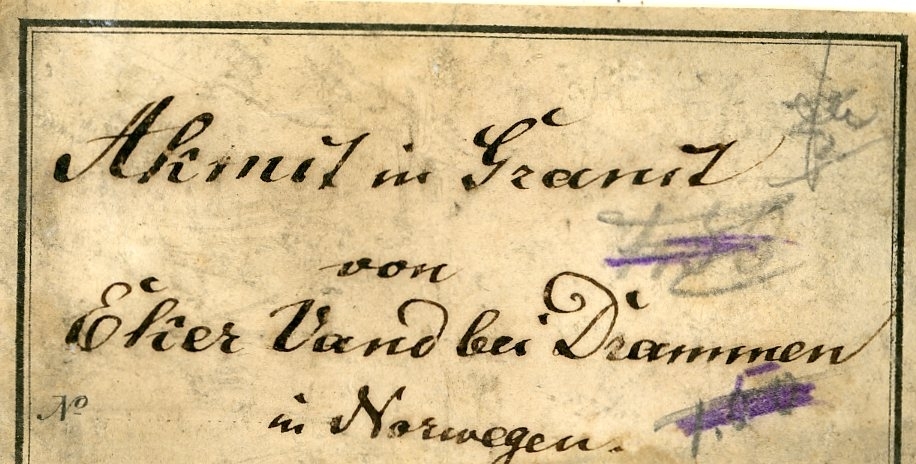 Akmit in Granit
von
Eker Vand bei Drammen
No
in Norwegen.